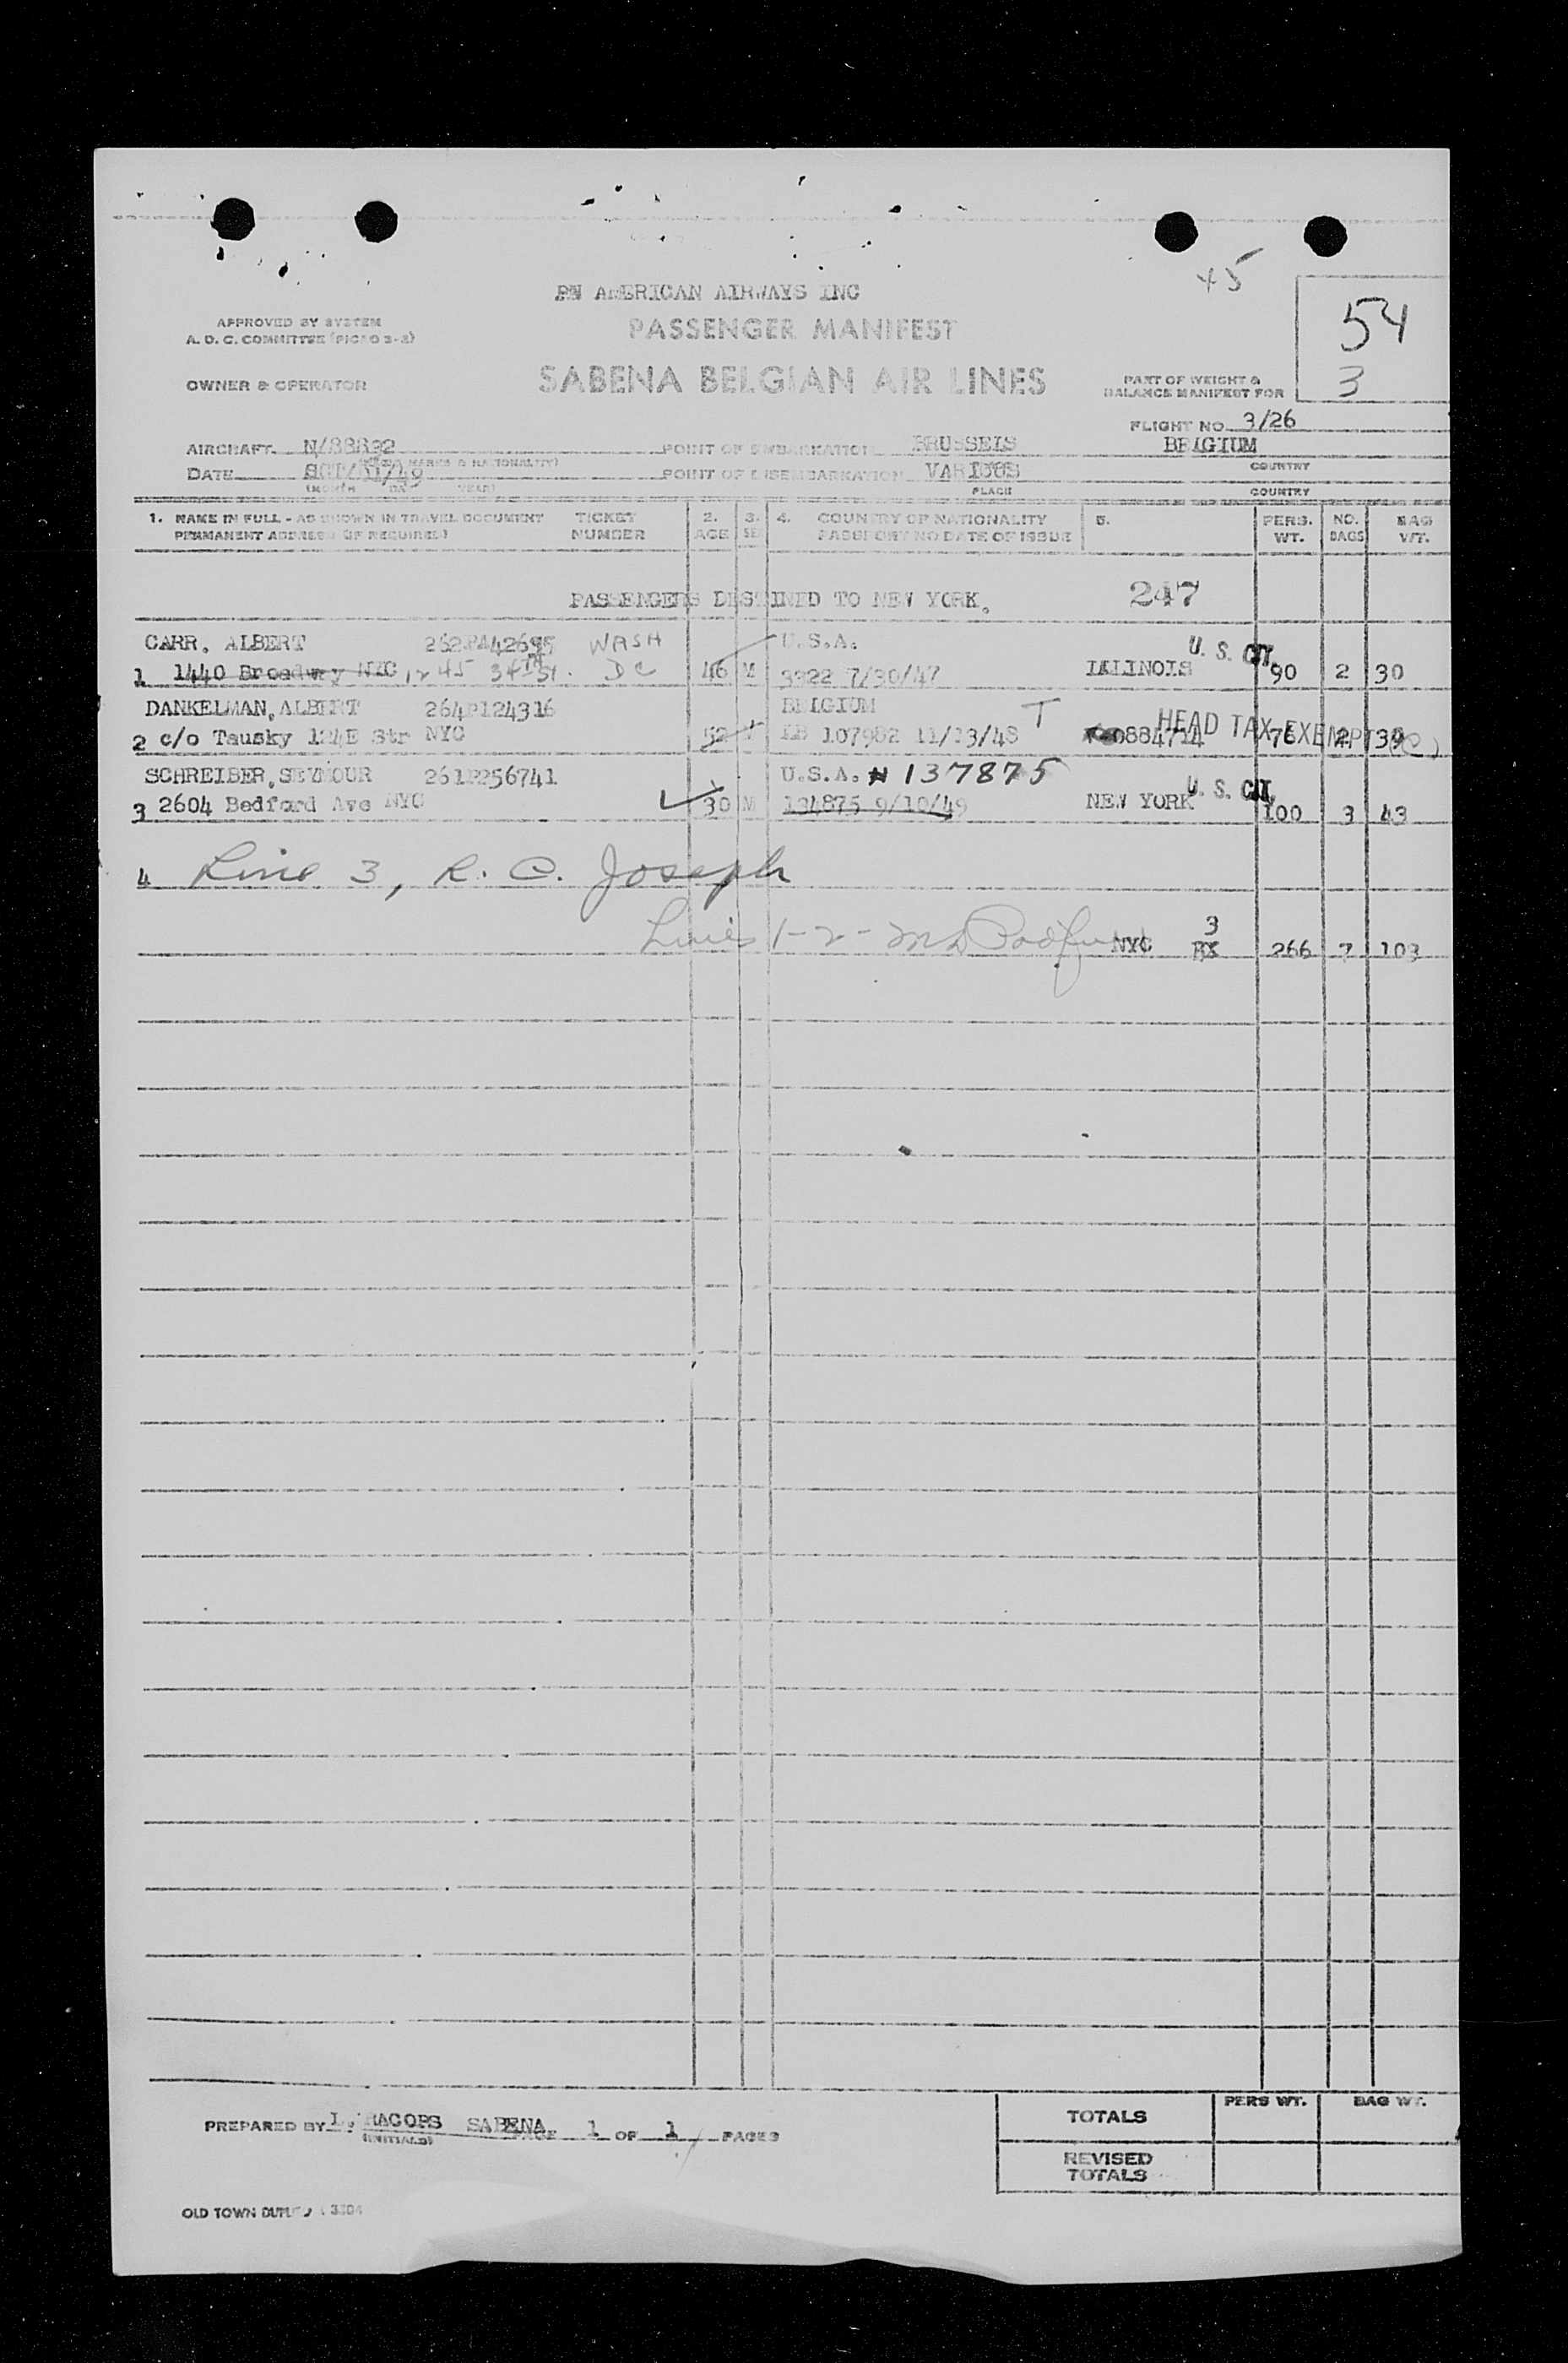 45
PN AMERICAN AIRWAYS INC
54
APPROVED BY SYSTEM
PASSENGER MANIFEST
A. O. C. COMMITTEE (PICAO 2-2)
OWNER & OPERATOR
SABENA BELGIAN AIR LINES
PART OF WEIGHT &
BALANCE MANIFEST FOR
3
FLIGHT NO. 3/26
AIRCRAFT N/88832 POINT OF EMBARKATION BRUSSELS BELGIUM
(MARKS & NATIONALITY) COUNTRY
DATE /49 POINT OF DISEMBARKATION VARIOUS
(MONTH DAY YEAR) PLACE COUNTRY
1. NAME IN FULL - AS SHOWN IN TRAVEL DOCUMENT TICKET 2. 3. 4. COUNTRY OF NATIONALITY 5. PERS. NO. BAG
PERMANENT ADDRESS (IF REQUIRED) NUMBER AGE SEX PASSPORT NO DATE OF ISSUE WT. BAGS WT.
PASSENGERS DESTINED TO NEW YORK. 247
CARR, ALBERT WASH U.S.A. U. S. CIT.
1 1440 Broadway NYC 1245 34TH St. DC 46 M 3922 7/30/47 ILLINOIS 90 2 30
DANKELMAN, ALBERT 264P124316 BELGIUM T HEAD TAX EXEMPT
2 c/o Tausky 124E Str NYC 52 M EB 107982 11/13/48 0884714 76 2 39
SCHREIBER, SEYMOUR 261P256741 U.S.A. N 137875 U. S. CIT.
3 2604 Bedford Ave NYC 30 M 134875 9/10/49 NEW YORK 100 3 43
4 Line 3, R. C. Joseph
Lines 1-2- NYC 3 266 7 103
PREPARED BY SABENA PAGE 1 OF 1 PAGES
(INITIALS)
TOTALS PERS WT. BAG WT.
REVISED
TOTALS
OLD TOWN